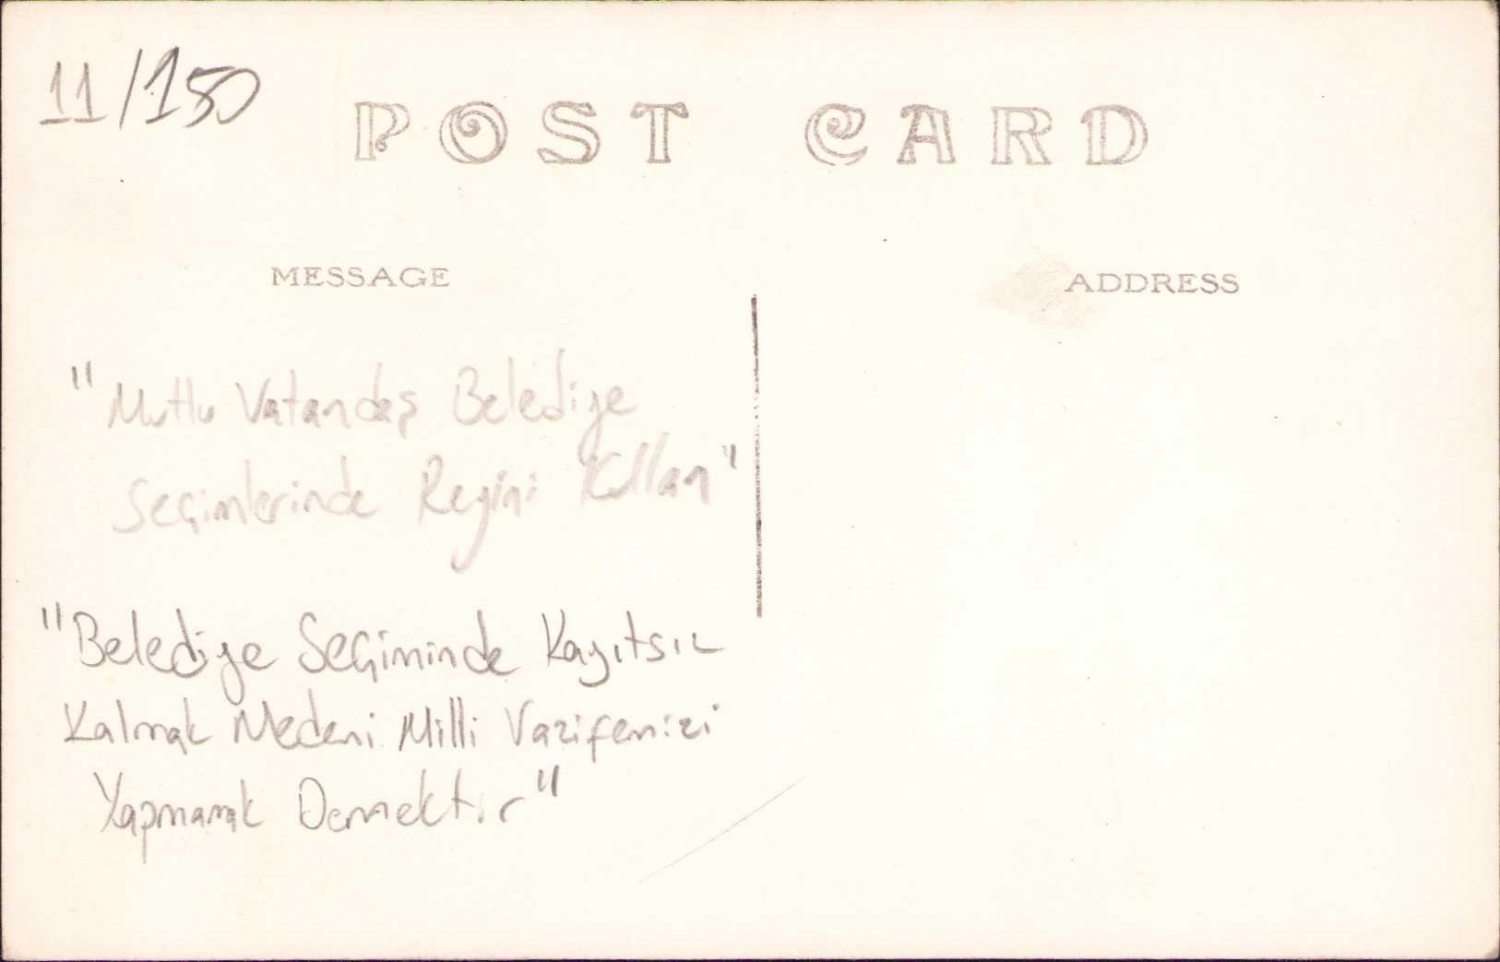 11/150
POST CARD
MESSAGE
ADDRESS
"Mutlu Vatandaş Belediye
Seçimlerinde Reyini Kullan"
"Belediye Seçiminde Kayıtsız
Kalmak Medeni Milli Vazifemizi
Yapmamak Demektir"